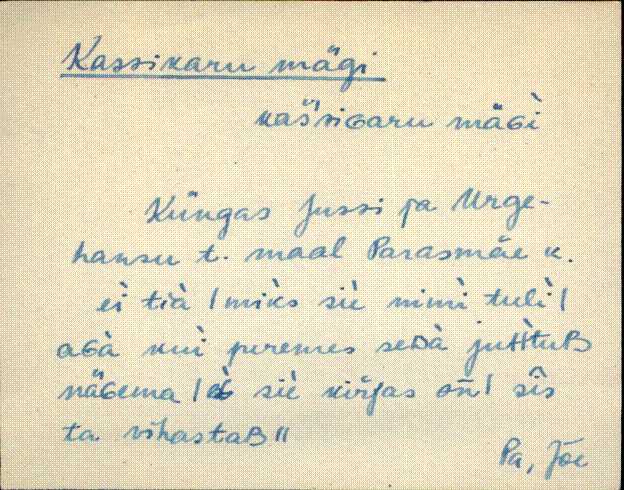 Kassikaru mägi
kaššiGaru mäGì
Küngas Jussi ja Urge-
hansu t. maal Parasmäe k.
eì tià | mìks siè nimì tulì |
aGà kui peremes seDà juttuB
näGema | siè kirjas oñ | sîs
ta vihastaB ||
Pa, Jõe